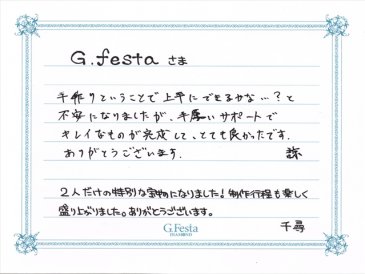 G.festa さま
手作りということで上手にできるかな…？と
不安になりましたが、手厚いサポートで
キレイなものが完成して、とても良かったです。
ありがとうございます.
２人だけの特別な宝物になりました！制作行程も楽しく
盛り上がりました。ありがとうございます。
千尋
G.Festa
DIAMOND